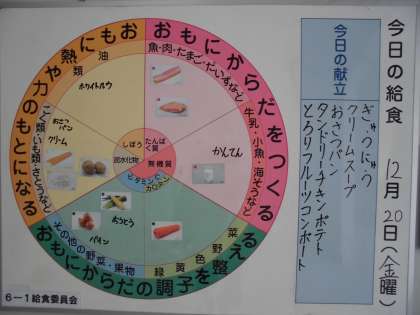 今日の給食 12月20日(金曜)
今日の献立
ぎゅうにゅう
クリームスープ
おさつパン
タンドリーチキンポテト
とろりフルーツコンポート
おもにからだをつくる
魚・肉・たまご・だいずなど
牛乳・小魚・海そうなど
かんてん
おもにからだの調子を整える
緑黄色野菜
その他の野菜・果物
おうとう
パイン
おもに熱や力のもとになる
油類
ホワイトルウ
こく類・いも類・さとうなど
おさつパン
クリーム
しぼう
たんぱく質
炭水化物
無機質
ビタミンC
カロテン
6-1給食委員会